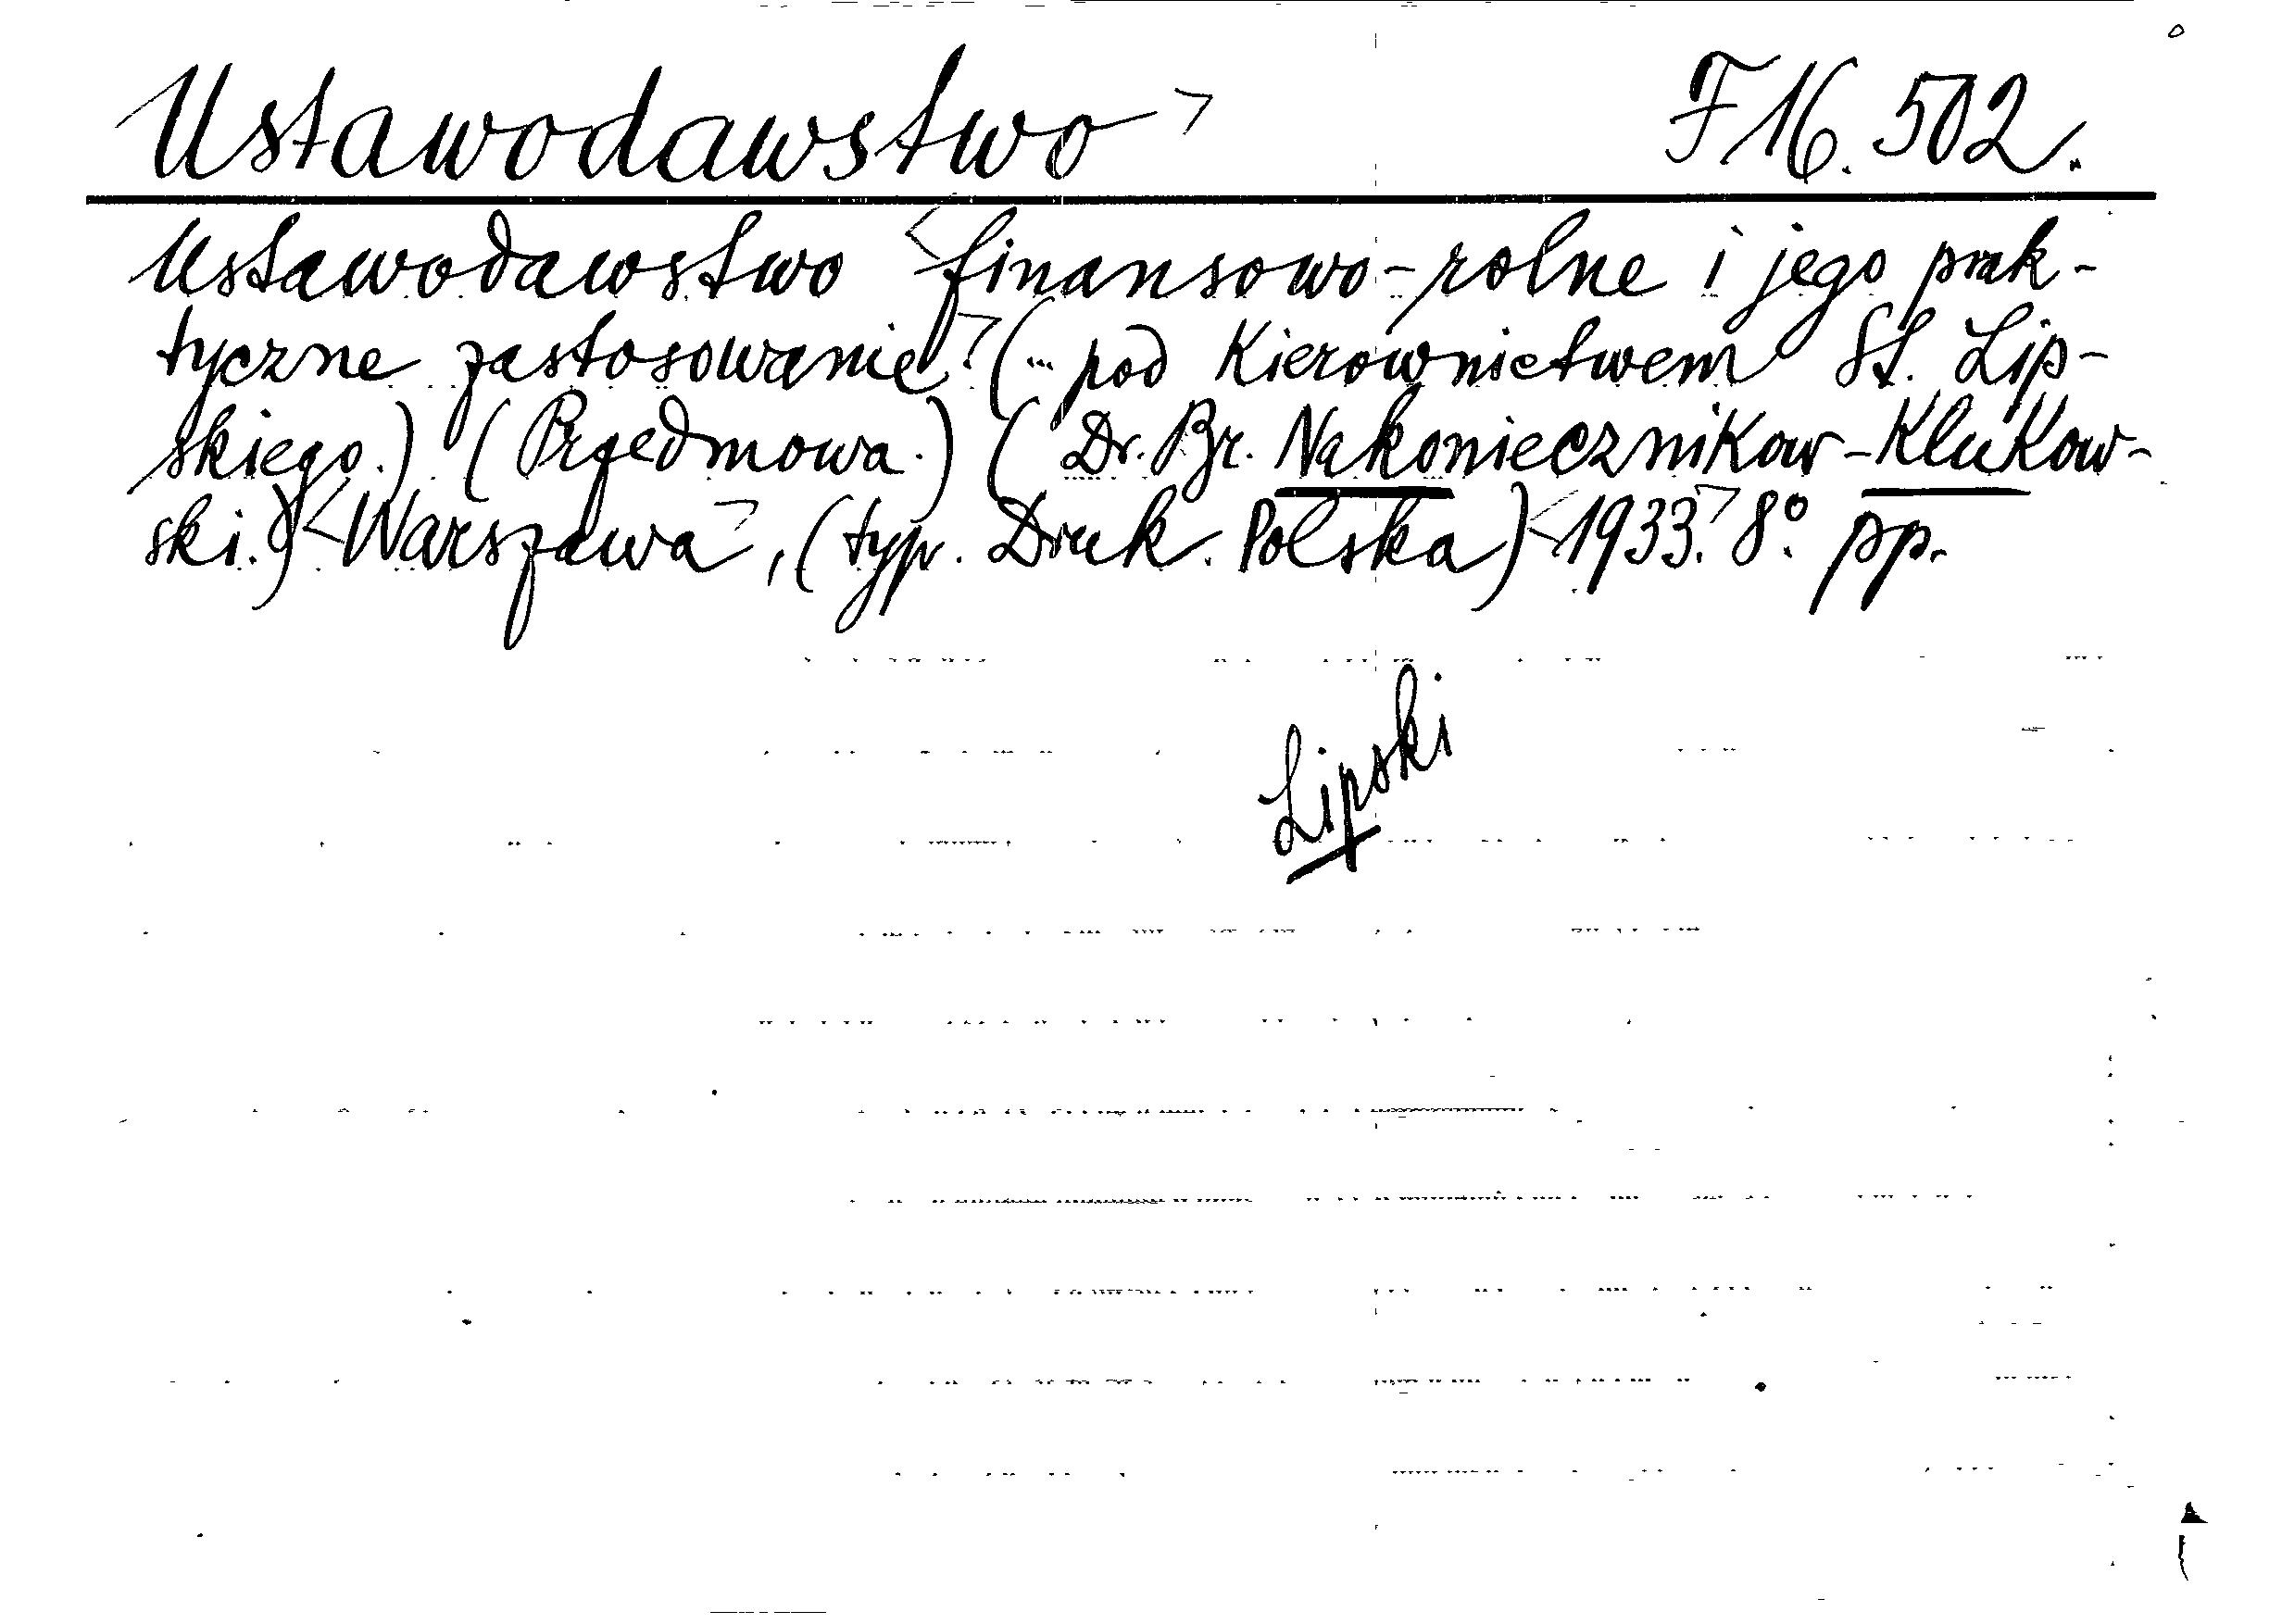 Ustawodawstwo F 16. 502.
Ustawodawstwo finansowo-rolne i jego prak-
tyczne zastosowanie. (... pod Kierownictwem St. Lip-
skiego.) (Przedmowa.) (Dr. Br. Nakoniecznikow-Klukow-
ski.) Warszawa, (typ. Druk. Polska) 1933. 8°. pp.
Lipski